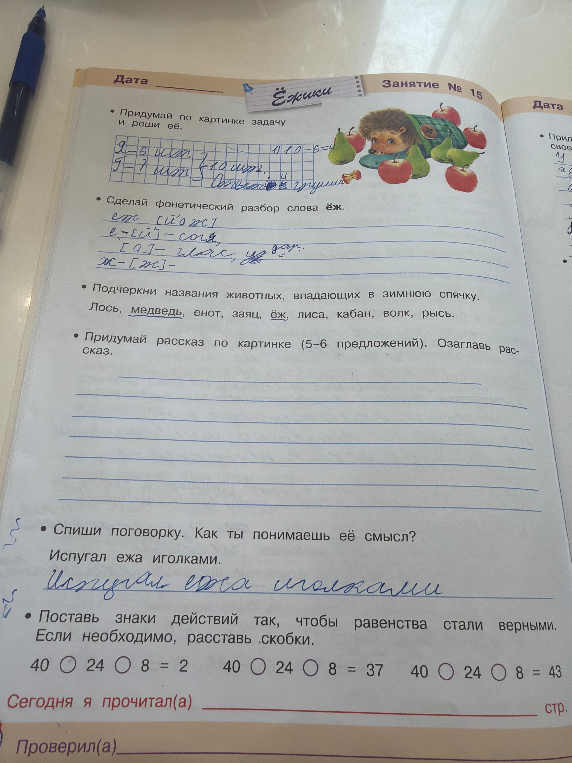 Дата
Ёжики
Занятие № 15
Дата
• Придумай по картинке задачу
и реши её.
Я = 6 шт.
10 - 6 = 4
• Сделай фонетический разбор слова ёж.
еж [йож]
е - [й] -
[о] - глас, удар.
ж - [ж] -
• Подчеркни названия животных, впадающих в зимнюю спячку.
Лось, медведь, енот, заяц, ёж, лиса, кабан, волк, рысь.
• Придумай рассказ по картинке (5–6 предложений). Озаглавь рас-
сказ.
• Спиши поговорку. Как ты понимаешь её смысл?
Испугал ежа иголками.
Испугал ежа иголками
• Поставь знаки действий так, чтобы равенства стали верными.
Если необходимо, расставь скобки.
40 ○ 24 ○ 8 = 2 40 ○ 24 ○ 8 = 37 40 ○ 24 ○ 8 = 43
Сегодня я прочитал(а) стр.
Проверил(а)